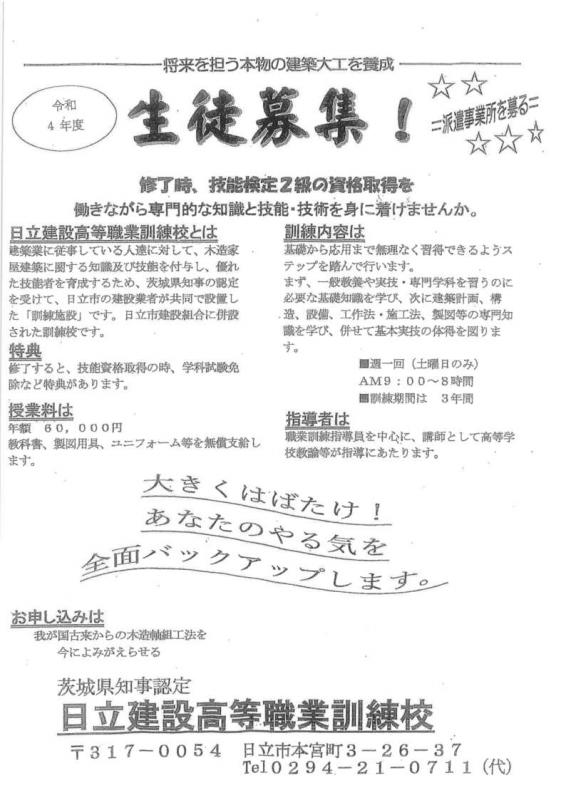 将来を担う本物の建築大工を養成
令和
4年度
生徒募集！
＝派遣事業所を募る＝
修了時、技能検定２級の資格取得を
働きながら専門的な知識と技能・技術を身に着けませんか。
日立建設高等職業訓練校とは
建築業に従事している人達に対して、木造家
屋建築に関する知識及び技能を付与し、優れ
た技能者を育成するため、茨城県知事の認定
を受けて、日立市の建設業者が共同で設置し
た「訓練施設」です。日立市建設組合に併設
された訓練校です。
特典
修了すると、技能資格取得の時、学科試験免
除など特典があります。
授業料は
年額　６０，０００円
教科書、製図用具、ユニフォーム等を無償支給し
ます。
訓練内容は
基礎から応用まで無理なく習得できるようス
テップを踏んで行います。
まず、一般教養や実技・専門学科を習うのに
必要な基礎知識を学び、次に建築計画、構
造、設備、工作法・施工法、製図等の専門知
識を学び、併せて基本実技の体得を図りま
す。
■週一回（土曜日のみ）
AM９：００～８時間
■訓練期間は　３年間
指導者は
職業訓練指導員を中心に、講師として高等学
校教諭等が指導にあたります。
大きくはばたけ！
あなたのやる気を
全面バックアップします。
お申し込みは
我が国古来からの木造軸組工法を
今によみがえらせる
茨城県知事認定
日立建設高等職業訓練校
〒３１７－００５４　日立市本宮町３－２６－３７
Tel０２９４－２１－０７１１（代）